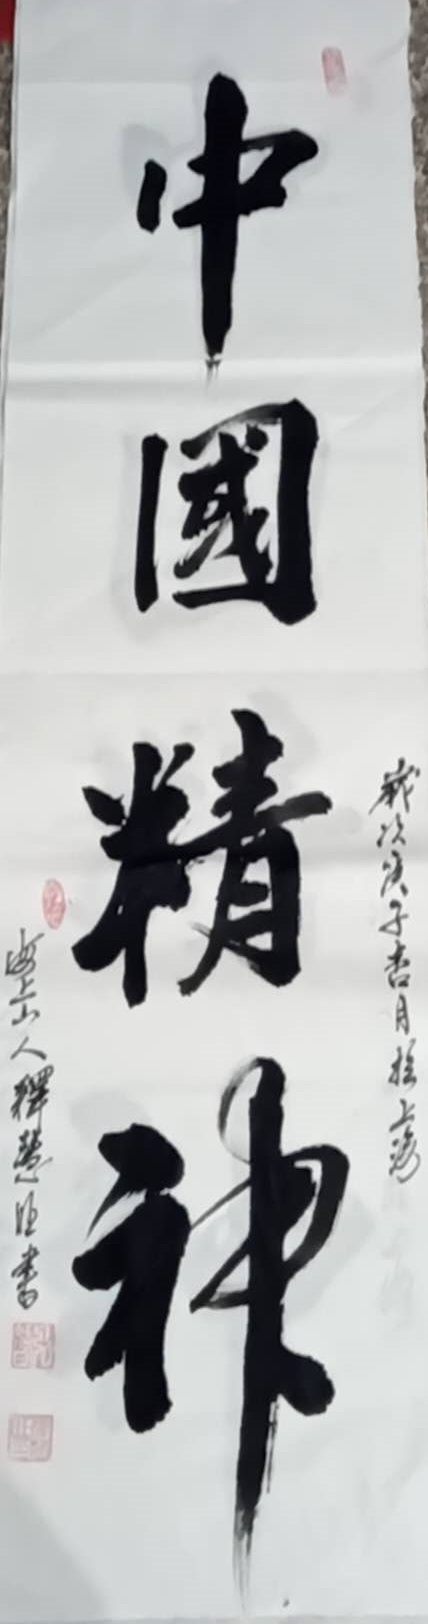 中國精神
歲次庚子杏月於上海
海上山人釋慧旺書